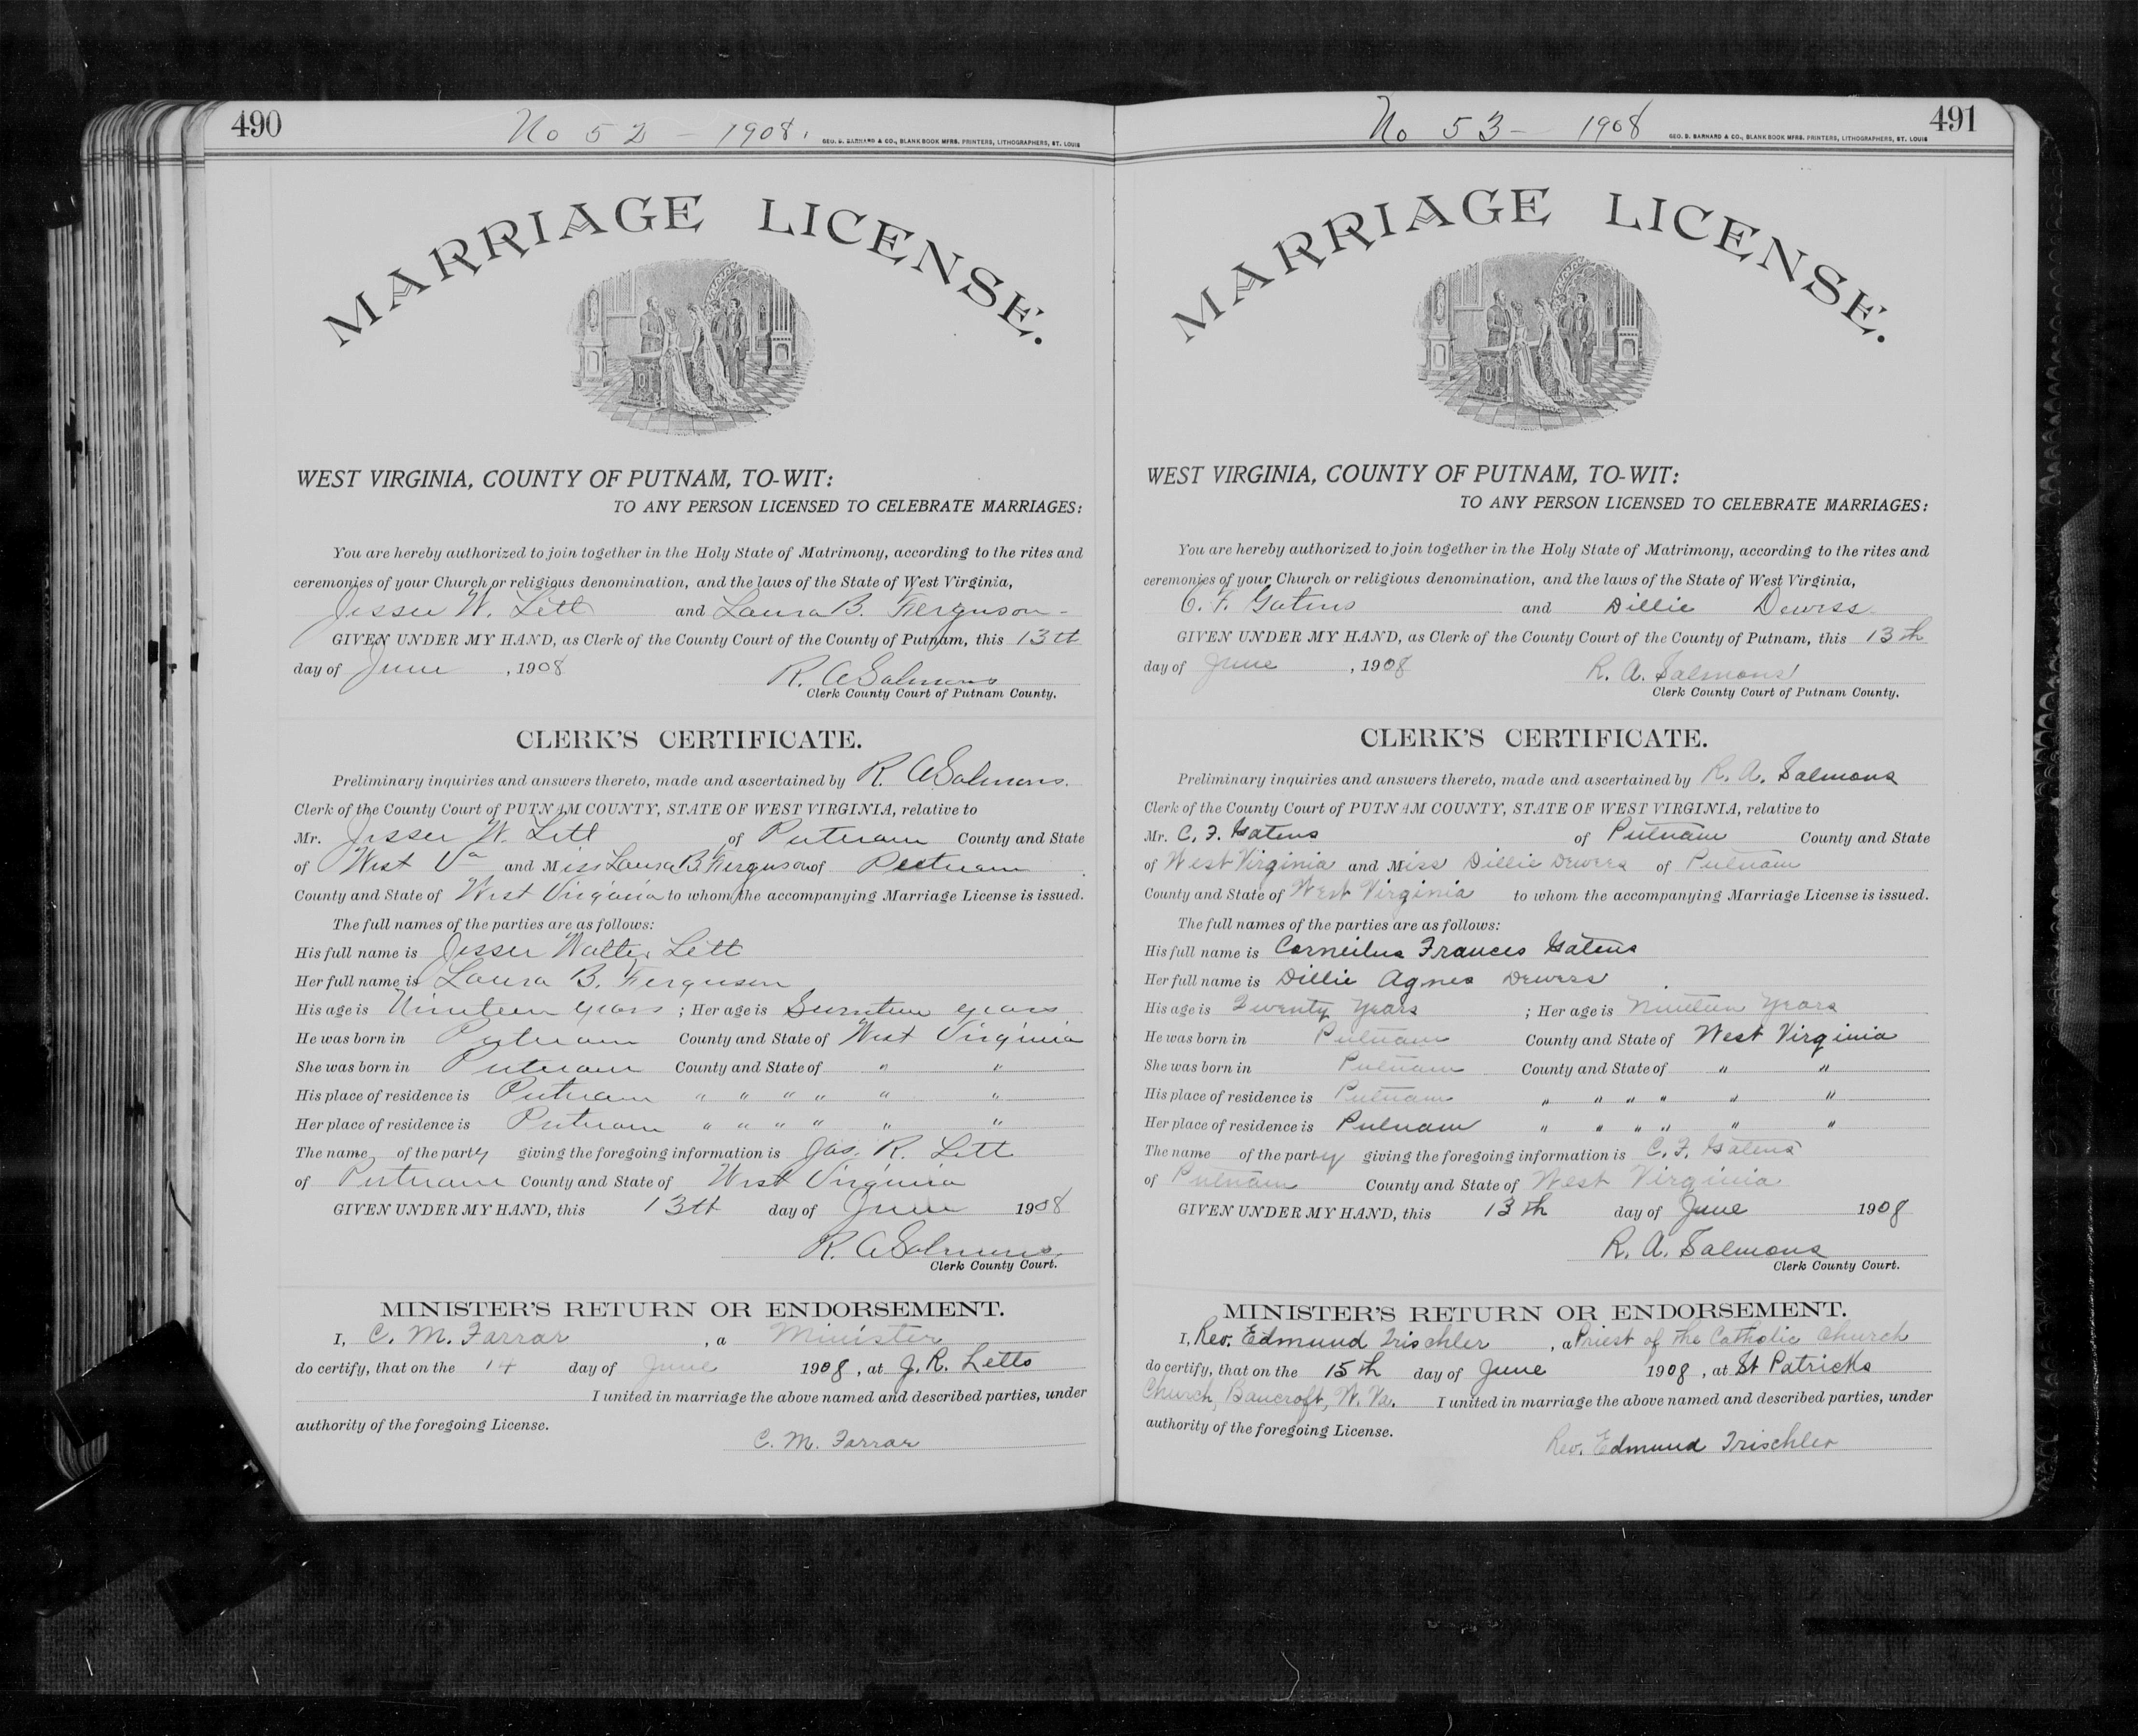 490
No 52 - 1908.
GEO. D. BARNARD & CO., BLANK BOOK MFRS. PRINTERS, LITHOGRAPHERS, ST. LOUIS
MARRIAGE LICENSE.
WEST VIRGINIA, COUNTY OF PUTNAM, TO-WIT:
TO ANY PERSON LICENSED TO CELEBRATE MARRIAGES:
You are hereby authorized to join together in the Holy State of Matrimony, according to the rites and
ceremonies of your Church or religious denomination, and the laws of the State of West Virginia,
Jessee W. Lett and Laura B. Ferguson -
GIVEN UNDER MY HAND, as Clerk of the County Court of the County of Putnam, this 13th
day of June, 1908 R. A Salmons
Clerk County Court of Putnam County.
CLERK'S CERTIFICATE.
Preliminary inquiries and answers thereto, made and ascertained by R. A Salmons.
Clerk of the County Court of PUTNAM COUNTY, STATE OF WEST VIRGINIA, relative to
Mr. Jessee W. Lett, of Putnam County and State
of West Va and Miss Laura B. Ferguson of Putnam
County and State of West Virginia to whom the accompanying Marriage License is issued.
The full names of the parties are as follows:
His full name is Jessee Walter Lett
Her full name is Laura B. Ferguson
His age is Nineteen years; Her age is Seventeen years
He was born in Putnam County and State of West Virginia
She was born in Putnam County and State of " "
His place of residence is Putnam " " " " " "
Her place of residence is Putnam " " " " " "
The name of the party giving the foregoing information is Jas. R. Lett
of Putnam County and State of West Virginia
GIVEN UNDER MY HAND, this 13th day of June 1908
R. A Salmons
Clerk County Court.
MINISTER'S RETURN OR ENDORSEMENT.
I, C. M. Farrar, a Minister
do certify, that on the 14 day of June 1908, at J. R. Letts
I united in marriage the above named and described parties, under
authority of the foregoing License.
C. M. Farrar
491
No 53 - 1908
GEO. D. BARNARD & CO., BLANK BOOK MFRS. PRINTERS, LITHOGRAPHERS, ST. LOUIS
MARRIAGE LICENSE.
WEST VIRGINIA, COUNTY OF PUTNAM, TO-WIT:
TO ANY PERSON LICENSED TO CELEBRATE MARRIAGES:
You are hereby authorized to join together in the Holy State of Matrimony, according to the rites and
ceremonies of your Church or religious denomination, and the laws of the State of West Virginia,
C. F. Gatens and Dillie Dewess
GIVEN UNDER MY HAND, as Clerk of the County Court of the County of Putnam, this 13th
day of June, 1908 R. A. Salmons
Clerk County Court of Putnam County.
CLERK'S CERTIFICATE.
Preliminary inquiries and answers thereto, made and ascertained by R. A. Salmons
Clerk of the County Court of PUTNAM COUNTY, STATE OF WEST VIRGINIA, relative to
Mr. C. F. Gatens of Putnam County and State
of West Virginia and Miss Dillie Dewees of Putnam
County and State of West Virginia to whom the accompanying Marriage License is issued.
The full names of the parties are as follows:
His full name is Corneilus Frances Gatens
Her full name is Dillie Agnes Dewess
His age is Twenty Years; Her age is Nineteen Years
He was born in Putnam County and State of West Virginia
She was born in Putnam County and State of " "
His place of residence is Putnam " " " " " "
Her place of residence is Putnam " " " " " "
The name of the party giving the foregoing information is C. F. Gatens
of Putnam County and State of West Virginia
GIVEN UNDER MY HAND, this 13th day of June 1908
R. A. Salmons
Clerk County Court.
MINISTER'S RETURN OR ENDORSEMENT.
I, Rev. Edmund Trischler, a Priest of the Catholic Church
do certify, that on the 15th day of June 1908, at St Patricks
Church, Bancroft, W. Va. I united in marriage the above named and described parties, under
authority of the foregoing License.
Rev. Edmund Trischler